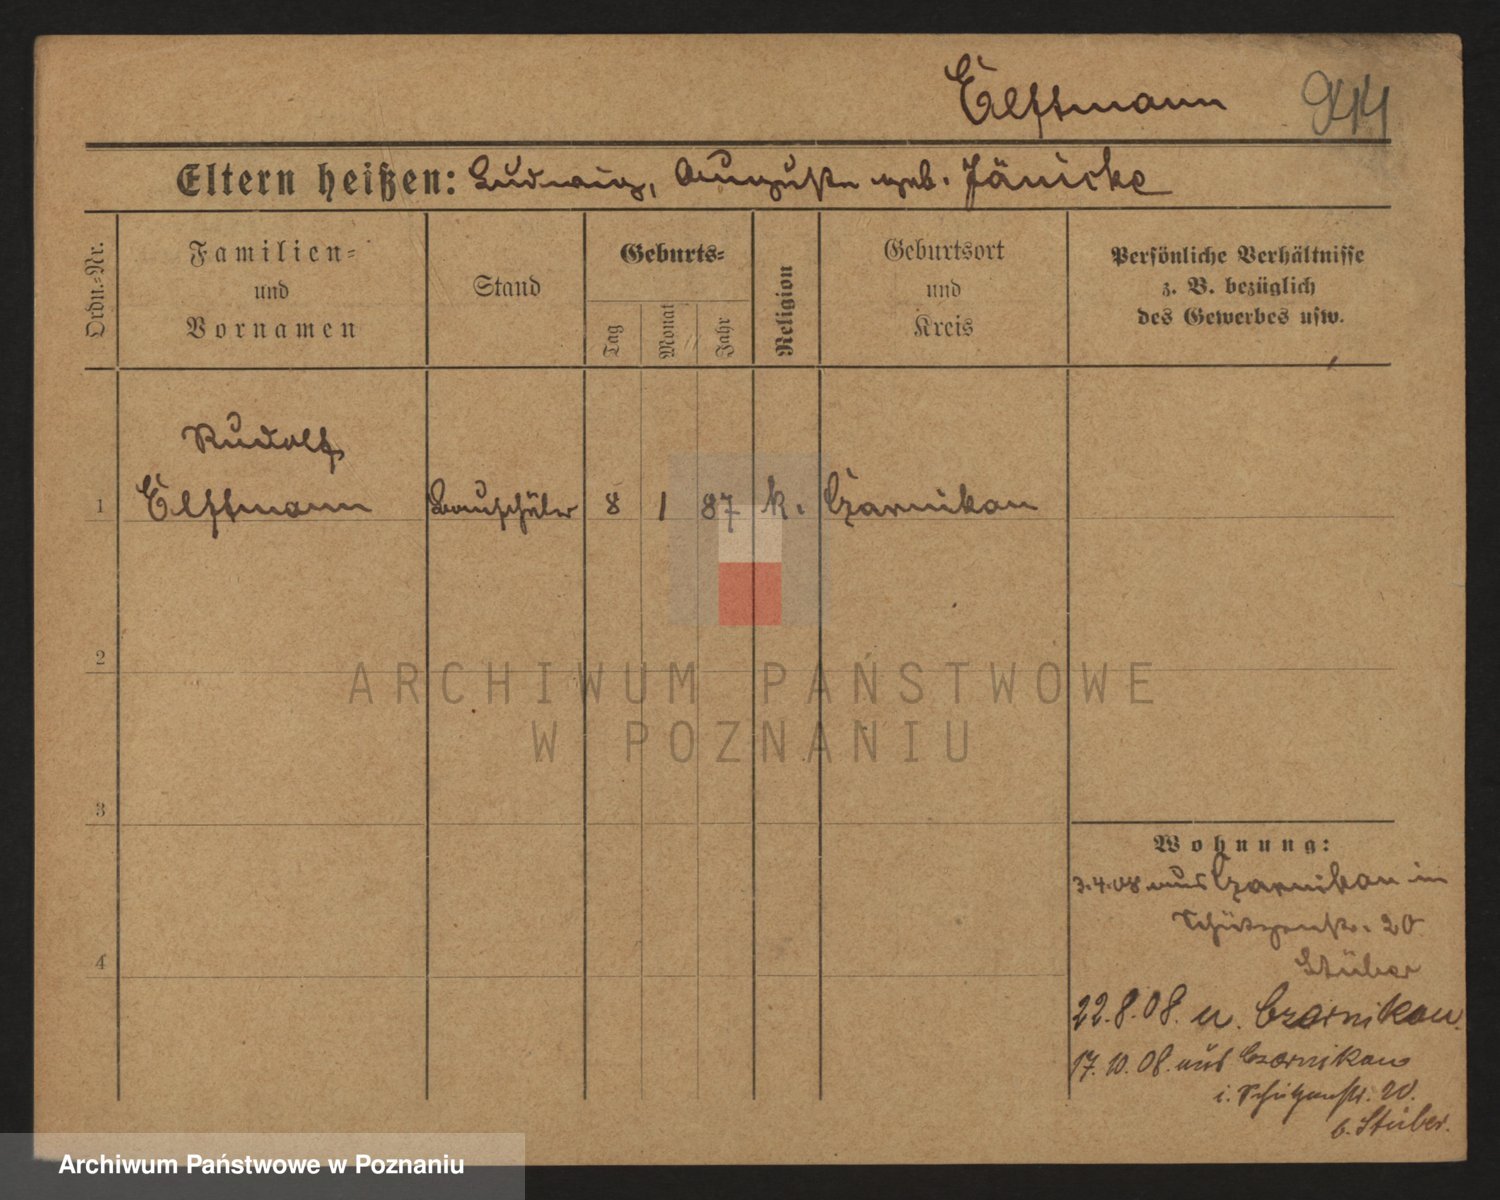 Elftmann 944
Eltern heißen: Ludwig, Auguste geb. Jänicke
Ordn.=Nr.
Familien=
und
Vornamen
Stand
Geburts=
Tag
Monat
Jahr
Religion
Geburtsort
und
Kreis
Persönliche Verhältnisse
z. B. bezüglich
des Gewerbes usw.
Rudolf
1 Elftmann Bauschüler 8 1 87 k. Czarnikau
2
3
4
ARCHIWUM PAŃSTWOWE
W POZNANIU
Wohnung:
3.4.08 aus Czarnikau in
Schützenstr. 20
Stüber
22.8.08. n. Czarnikau.
17.10.08. aus Czarnikau
i. Schützenstr. 20.
b. Stüber.
Archiwum Państwowe w Poznaniu